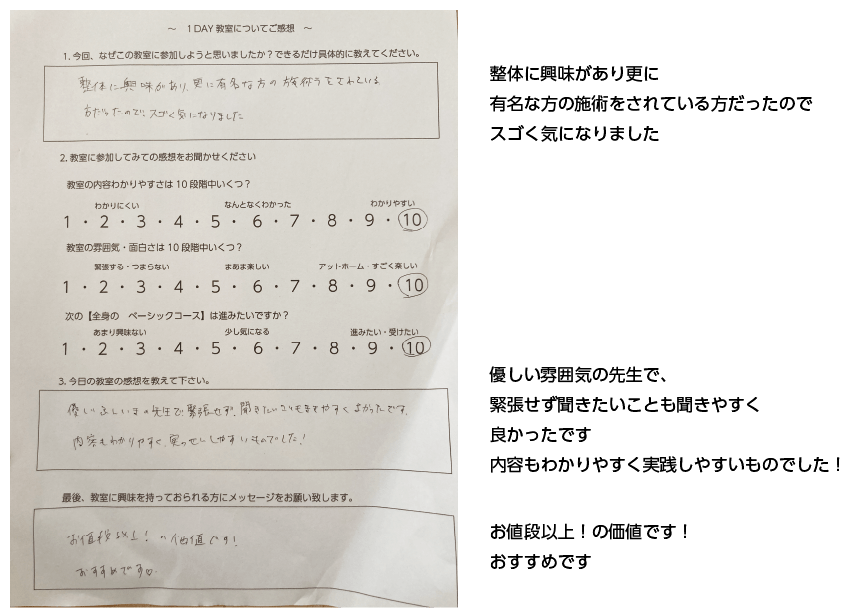 ～　1DAY 教室についてご感想　～
1. 今回、なぜこの教室に参加しようと思いましたか？できるだけ具体的に教えてください。
整体に興味があり、更に有名な方の施術うをされている
方だったので、スゴく気になりました
2. 教室に参加してみての感想をお聞かせください
教室の内容わかりやすさは 10 段階中いくつ？
わかりにくい　なんとなくわかった　わかりやすい
1 ・ 2 ・ 3 ・ 4 ・ 5 ・ 6 ・ 7 ・ 8 ・ 9 ・ 10
教室の雰囲気・面白さは 10 段階中いくつ？
緊張する・つまらない　まあま楽しい　アットホーム・すごく楽しい
1 ・ 2 ・ 3 ・ 4 ・ 5 ・ 6 ・ 7 ・ 8 ・ 9 ・ 10
次の【全身の　ベーシックコース】は進みたいですか？
あまり興味ない　少し気になる　進みたい・受けたい
1 ・ 2 ・ 3 ・ 4 ・ 5 ・ 6 ・ 7 ・ 8 ・ 9 ・ 10
3. 今日の教室の感想を教えて下さい。
優しいふんいきの先生で緊張せず、聞きたいこともききやすくよかったです。
内容もわかりやすく、実っせんしやすいものでした！
最後、教室に興味を持っておられる方にメッセージをお願い致します。
お値段以上！の価値です！
おすすめです♡
整体に興味があり更に
有名な方の施術をされている方だったので
スゴく気になりました
優しい雰囲気の先生で、
緊張せず聞きたいことも聞きやすく
良かったです
内容もわかりやすく実践しやすいものでした！
お値段以上！の価値です！
おすすめです